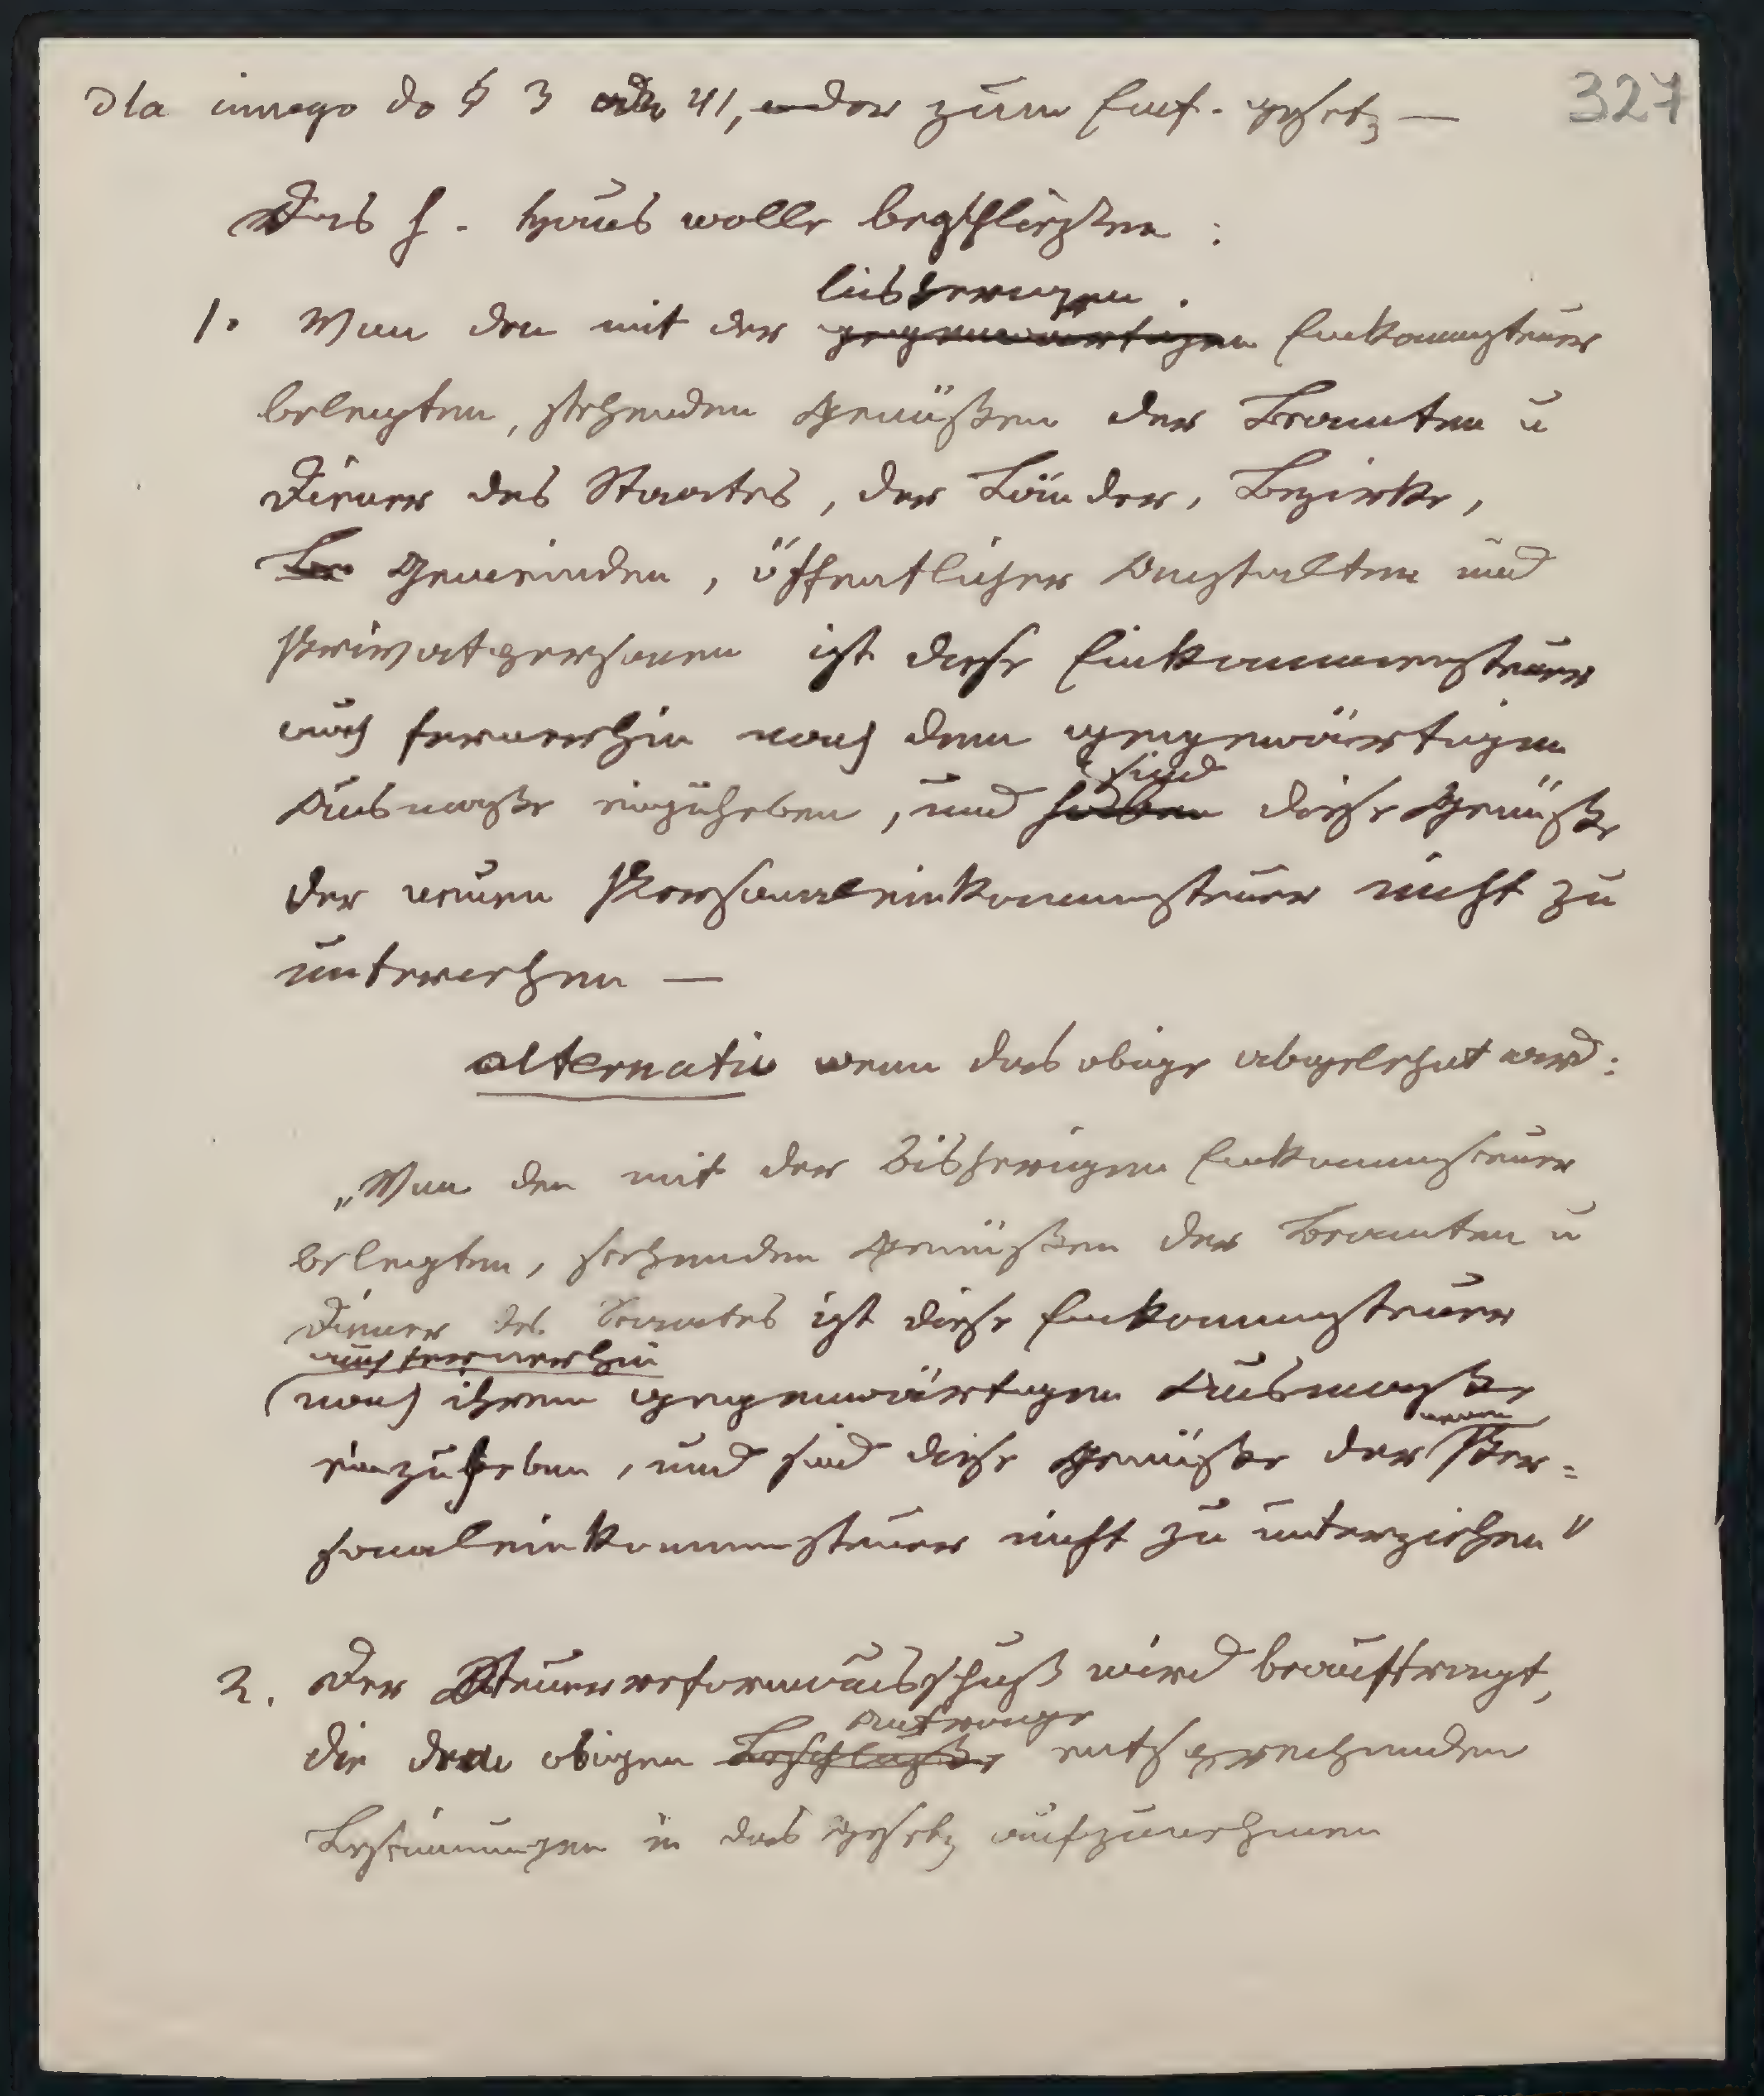 dla innego do § 3 oder 41, oder zum Einf. gesetz — 327
Das h. Haus wolle beschließen:
bisherigen
1. Von den mit der gegenwärtigen Einkommsteuer
belegten, stehenden Genüßen der Beamten u
Diener des Staates, der Länder, Bezirke,
Be Gemeinden, öffentlicher Anstalten und
Privatpersonen ist diese Einkommensteuer
auch fernerhin nach dem gegenwärtigen
sind
Ausmaße einzuheben, und haben diese Genüße
der neuen Personaleinkommsteuer nicht zu
unterziehen —
alternativ wenn das obige abgelehnt wird:
„Von den mit der bisherigen Einkommsteuer
belegten, stehenden Genüßen der Beamten u
Diener des Staates ist diese Einkommsteuer
auch fernerhin
nach ihrem gegenwärtigen Ausmaße
neuen
einzuheben, und sind diese Genüße der Per=
sonaleinkommensteuer nicht zu unterziehen"
2. Der Steuerreformausschuß wird beauftragt,
Antrage
die dem obigen Beschluße entsprechenden
Bestimungen in das Gesetz aufzunehmen